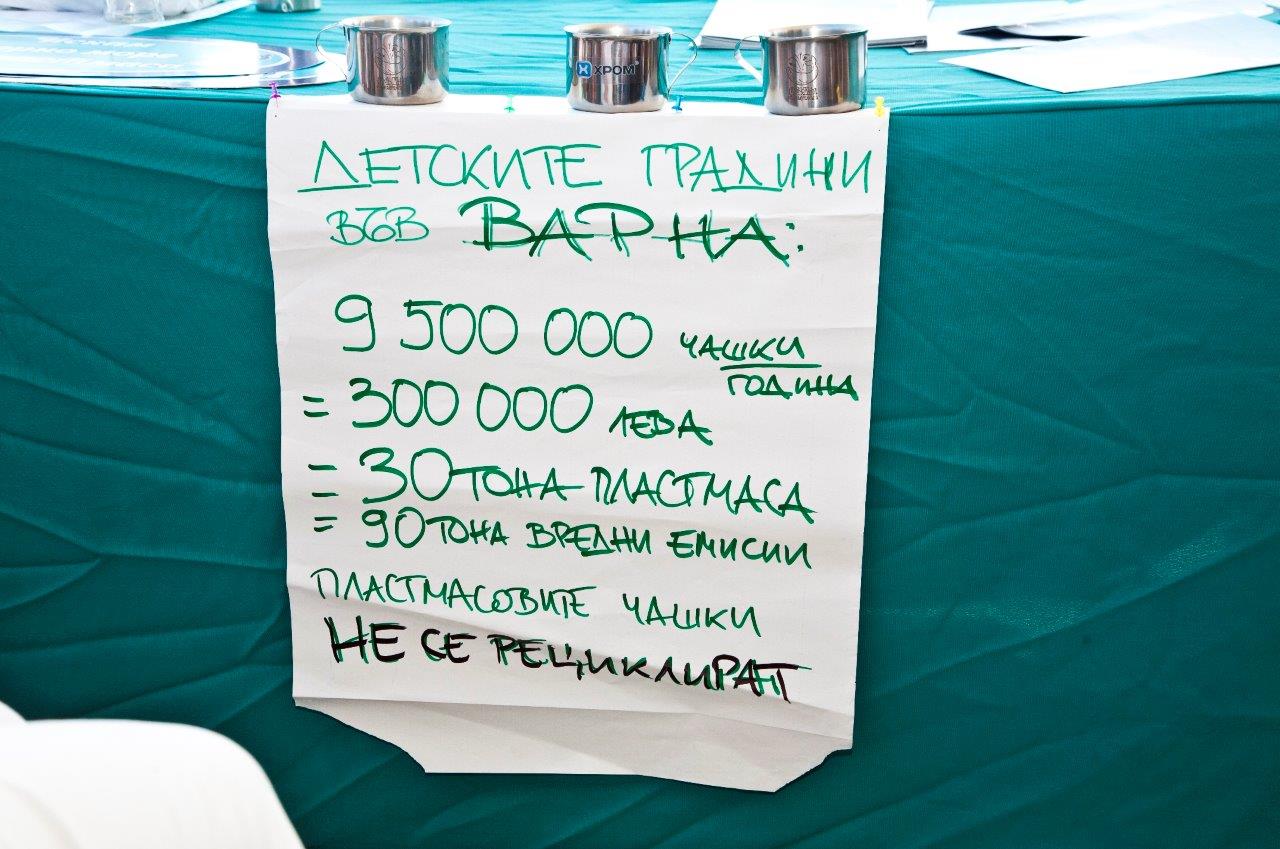 ХРОМ
ДЕТСКИТЕ ГРАДИНИ
ВЪВ ВАРНА:
9 500 000 ЧАШКИ
ГОДИНА
= 300 000 ЛЕВА
= 30 ТОНА ПЛАСТМАСА
= 90 ТОНА ВРЕДНИ ЕМИСИИ
ПЛАСТМАСОВИТЕ ЧАШКИ
НЕ СЕ РЕЦИКЛИРАТ